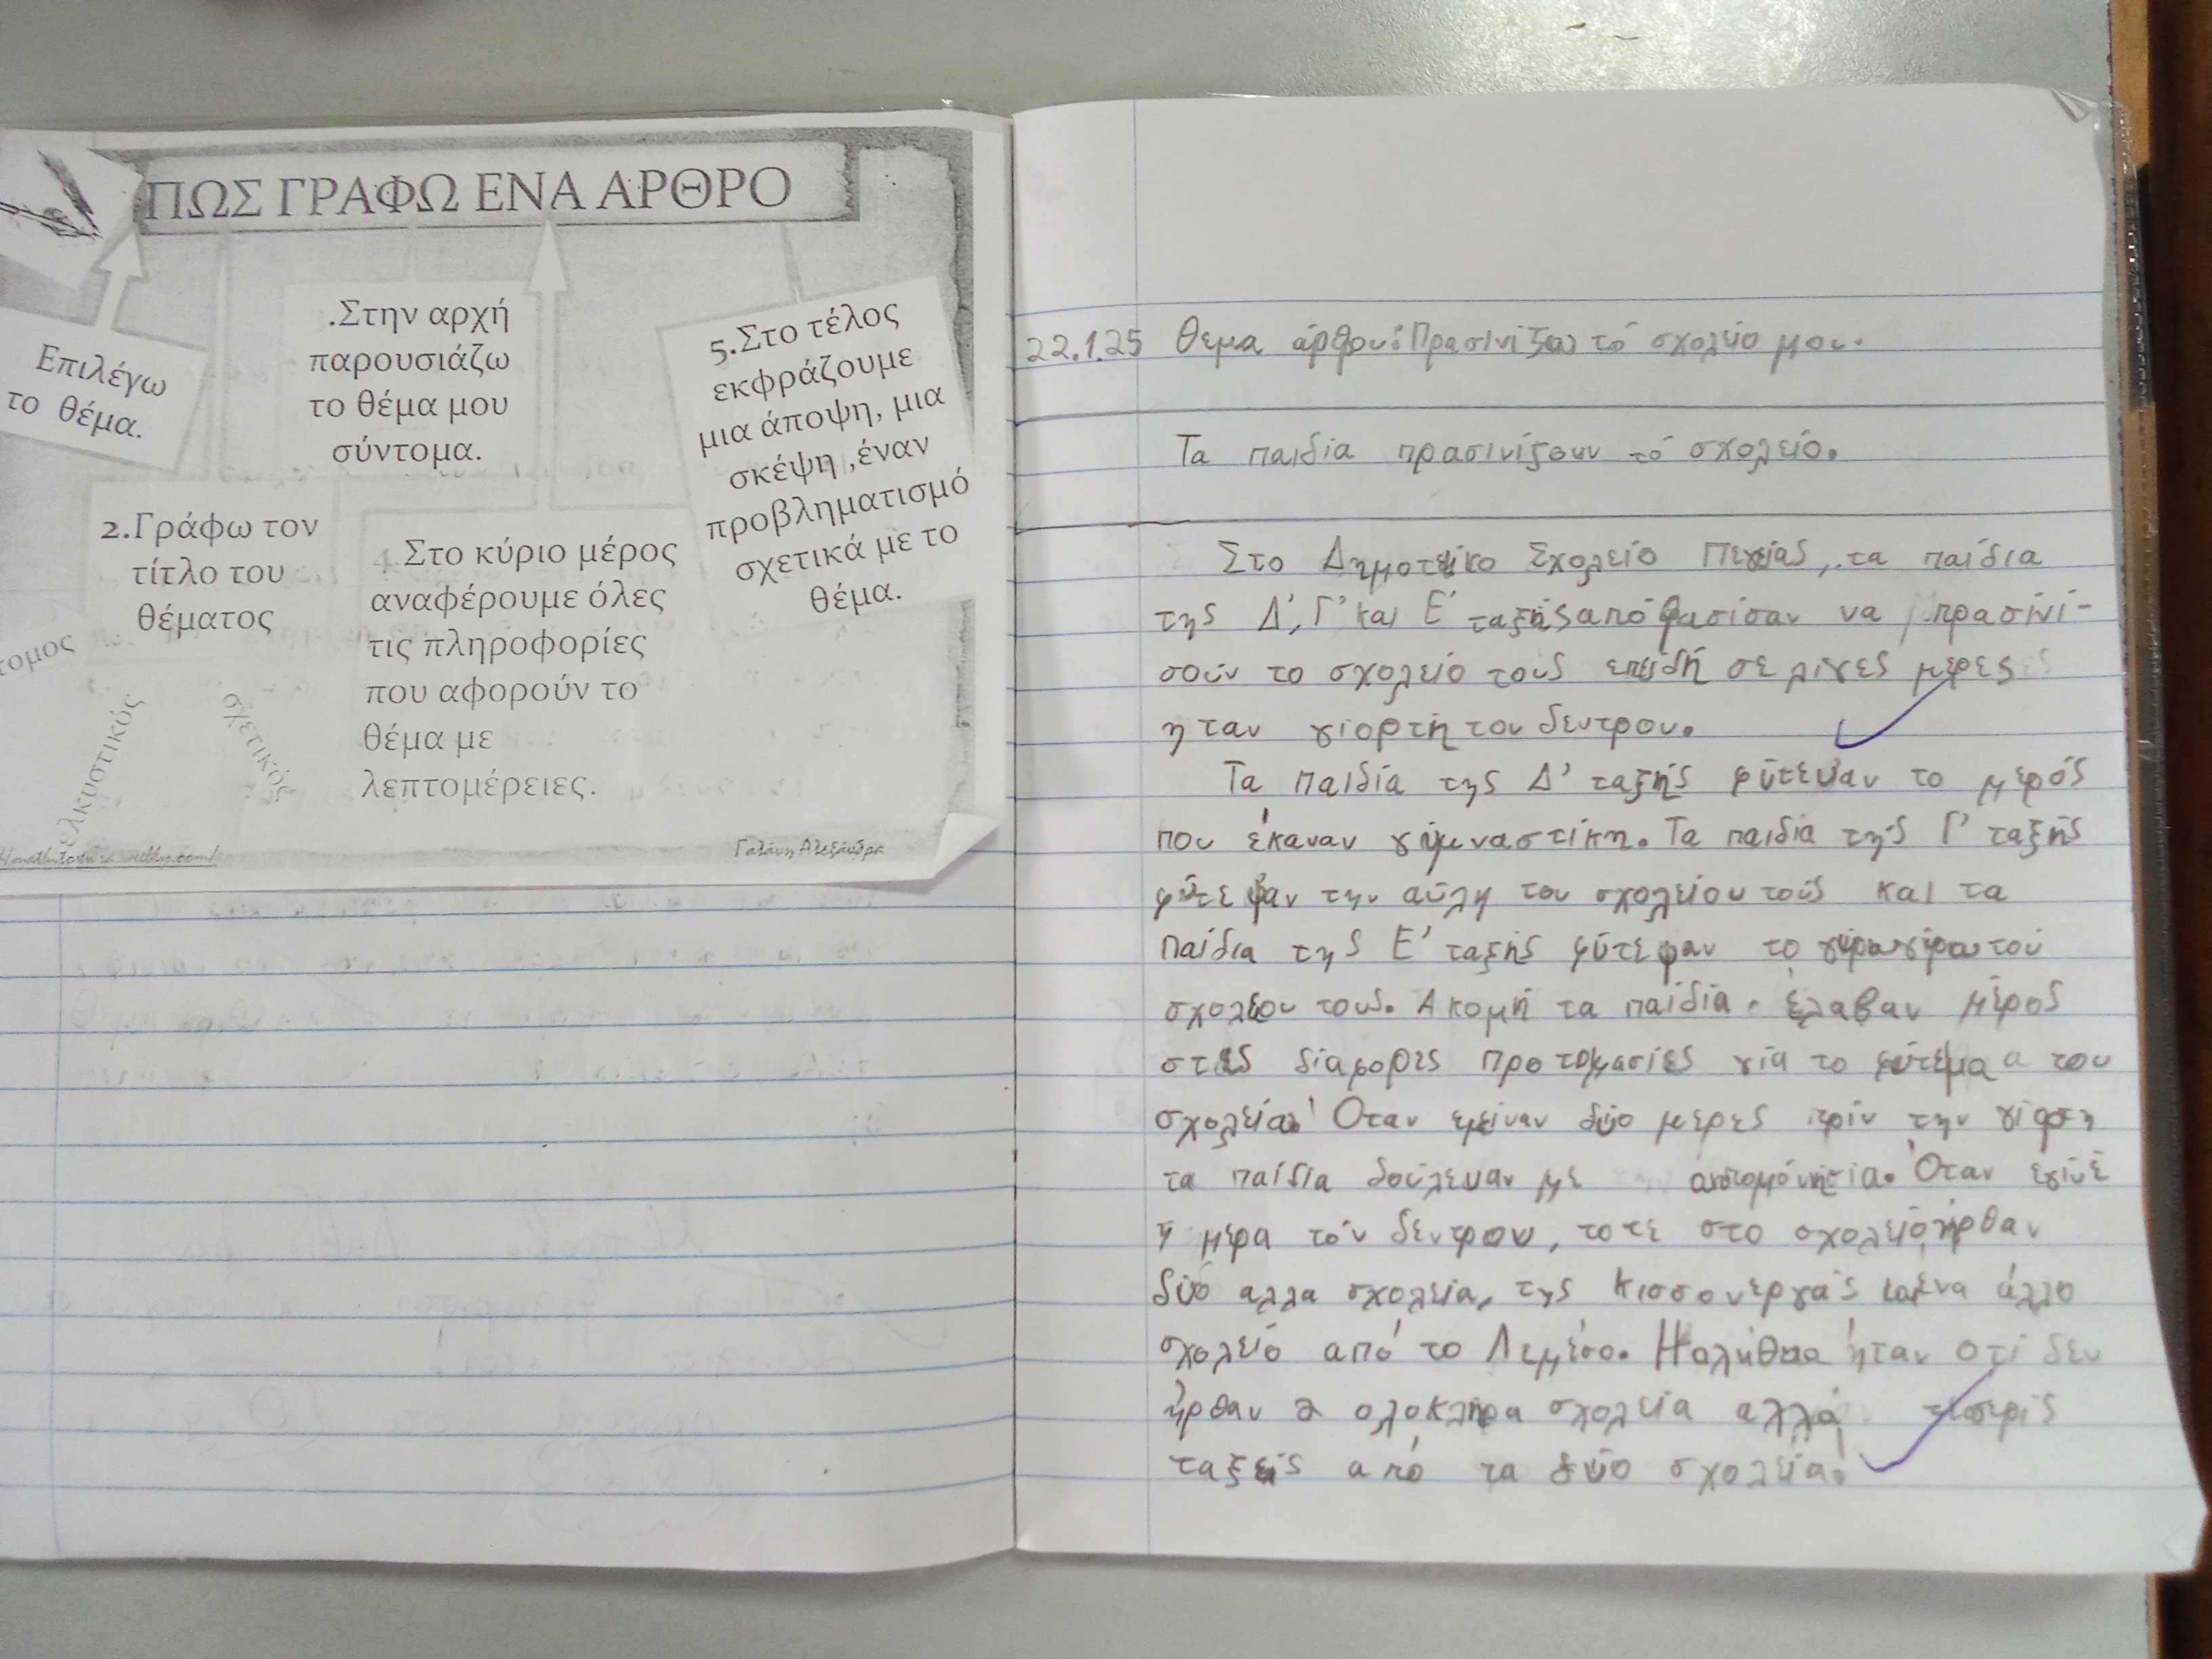 ΠΩΣ ΓΡΑΦΩ ΕΝΑ ΑΡΘΡΟ
Επιλέγω
το θέμα.
2.Γράφω τον
τίτλο του
θέματος
τομος
ελκυστικός
σχετικός
.Στην αρχή
παρουσιάζω
το θέμα μου
σύντομα.
4.Στο κύριο μέρος
αναφέρουμε όλες
τις πληροφορίες
που αφορούν το
θέμα με
λεπτομέρειες.
5.Στο τέλος
εκφράζουμε
μια άποψη, μια
σκέψη ,έναν
προβληματισμό
σχετικά με το
θέμα.
Γαλάνη Αλεξάνδρα
22.1.25 Θεμα άρθρου: Πρασινίζω τό σχολείο μου.
Τα παιδία πρασινίζουν τό σχολείο.
Στο Δημοτικο Σχολείο Πεγείας, τα παίδια
της Δ', Γ' και Ε' ταξής αποφασίσαν να πρασίνί-
σούν το σχολείο τους επειδή σε λίγες μέρες
η ταν γιορτή του δεντρου.
Τα παιδία της Δ' ταξής φύτεψαν το μερός
που έκαναν γύμναστίκη. Τα παιδία τής Γ' ταξής
φύτεψαν την αύλη του σχολείου τούς και τα
παίδια της Ε' ταξής φύτεψαν το γύρω γύρω τού
σχολείου τους. Ακομή τα παίδια έλαβαν μέρος
στις διαφορες προτομασίες γία το φύτεμα του
σχολεία! Οταν εμείναν δύο μερες πρίν την γίορτη
τα παίδια δούλεψαν με Όταν εγίνέ
ή μέρα τόυ δεντρου, τοτε στο σχολείο ήρθαν
δύο αλλα σχολεία, της Κισσονεργάς και ένα άλλο
σχολείο από το Λεμέσο. Η αλήθεια ήταν οτί δεν
ήρθαν ολοκληρα σχολεία αλλά τεσερίς
ταξείς από τα δύο σχολεία!